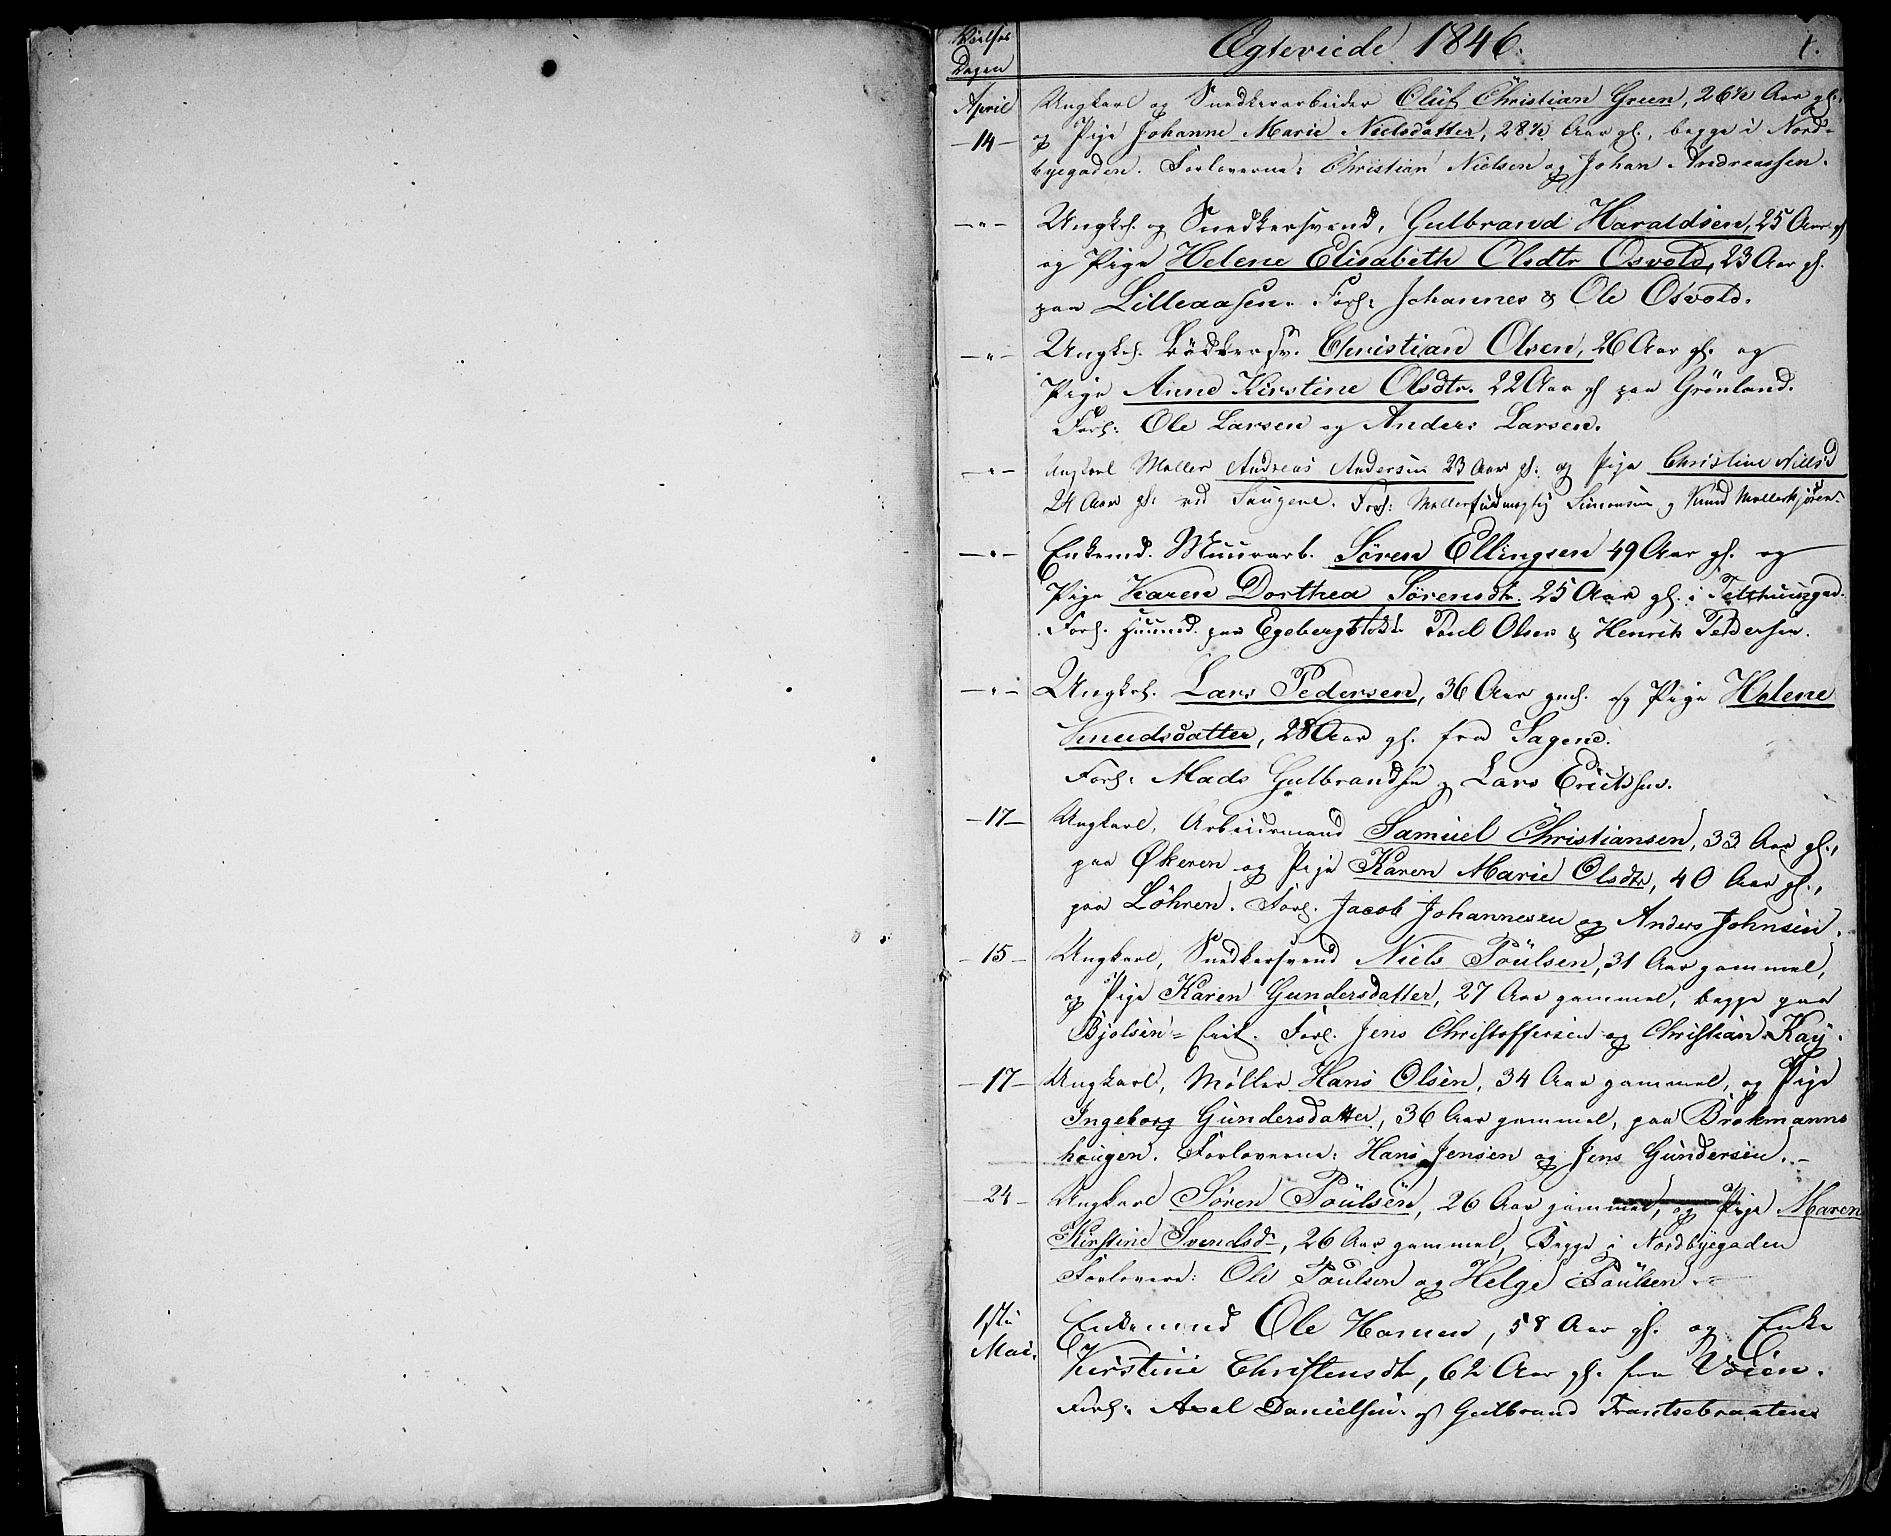 Vielses Dagen
Ægteviede 1846.
1.
April
14
Ungkarl og Snedkerarbeider Oluf Christian Green, 26½ Aar gl.,
og Pige Johanne Marie Nielsdatter, 28½ Aar gl., begge i Nord-
byegaden. Forloverne: Christian Nielsen og Johan Andreassen.
—"— Ungkrl. og Snedkersvend, Gulbrand Haraldsen, 25 Aar gl
og Pige Helene Elisabeth Olsdtr Osvold, 23 Aar gl.
paa Lilleaasen. Forl: Johannes & Ole Osvold.
—"— Ungkrl. Bödkersv. Christian Olsen, 26 Aar gl. og
Pige Anne Kirstine Olsdtr. 22 Aar gl paa Grönland.
Forl: Ole Larsen og Anders Larsen.
—"— Ungkarl Møller Andreas Andersen 23 Aar gl. og Pige Christine Nielsd
24 Aar gl. ved Saugene. Forl: Møllerfuldmægtig Simensen og Knud
—"— Enkemd. Muurarb. Sören Ellingsen 49 Aar gl. og
Pige Karen Dorthea Sörensdtr. 25 Aar gl. i Telthuusgad.
Forl. Huusmd. paa Poul Olsen & Henrik Pedersen.
—"— Ungkrl. Lars Pedersen, 36 Aar gml. og Pige Helene
Knudsdatter, 28 Aar gl. fra Sagene.
Forl: Mads Gulbrandsen og Lars Ericksen.
—17— Ungkarl, Arbeidsmand Samuel Christiansen, 33 Aar gl.,
paa Økeren og Pige Karen Marie Olsdtr, 40 Aar gl.,
paa Löhren. Forl. Jacob Johannesen og Anders Johnsen.
—15— Ungkarl, Snedkersvend Niels Poulsen, 31 Aar gammel,
og Pige Karen Gundersdatter, 27 Aar gammel, begge paa
Bjolsen- Eie. Forl. Jens Christoffersen og Christian Kay.
—17— Ungkarl, Møller Hans Olsen, 34 Aar gammel, og Pige
Ingeborg Gundersdatter, 36 Aar gammel, paa Brokmanns
haugen. Forloverne: Hans Jensen og Jens Gundersen.—
—24— Ungkarl Sören Poulsen, 26 Aar gammel, og Pige Maren
Kirstine Svendsdr, 26 Aar gammel, Begge i Nordbyegaden
Forlovere: Ole Poulsen og Helge Poulsen.
1ste
Mai.
Enkemand Ole Hansen, 58 Aar gl. og Enke
Kirstine Christensdtr, 62 Aar gl. fra Vöien.
Forl: Axel Danielsen og Gulbrand Frantsebraaten